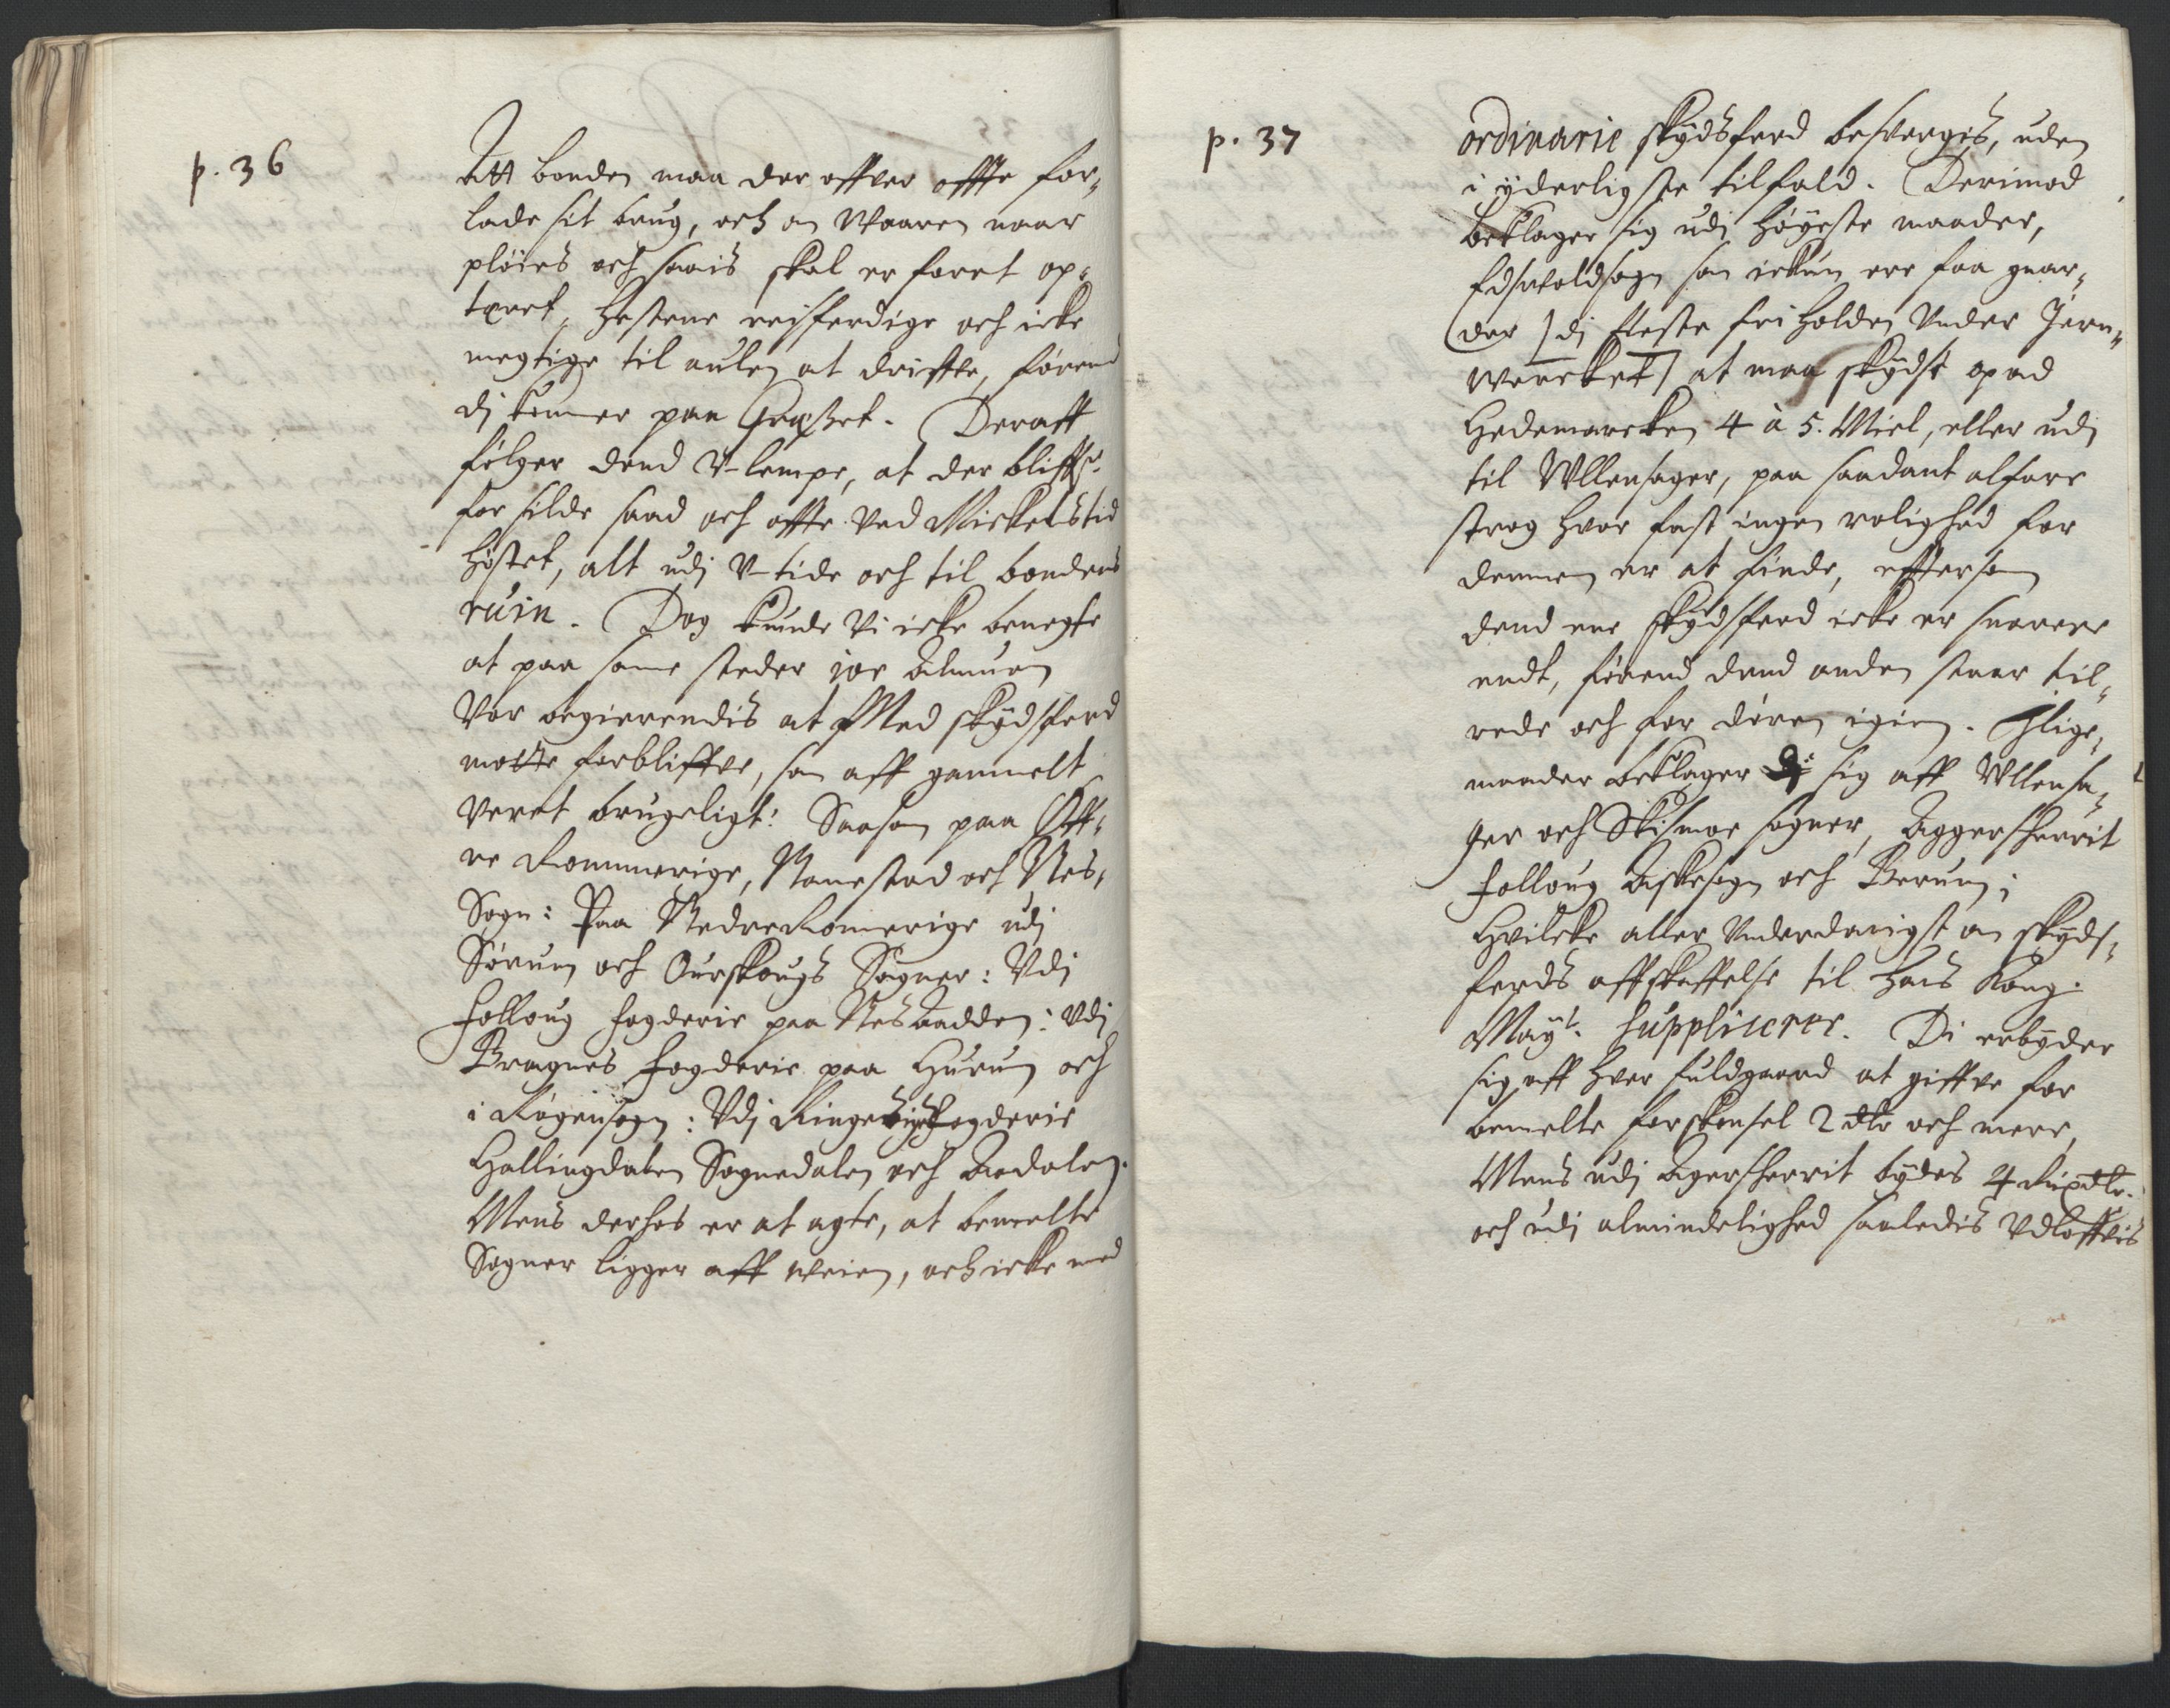 p. 36
Att bonden maa der offver offte for-
lade sit brug, och om Waaren naar
pløies och saais skal er foret op-
tæret, hestene reisferdige och icke
megtige til aulen at drifve, førend
di kommer paa Græsset. Deraff
følger dend V-lempe, at der bliffr
for silde saad och offte ved Mickelstid
høstet, alt udj V-tide och til bondens
ruin. Dog kunde Vi icke benegte
at paa some steder jøe Almuen
Var begierendis at Med skydsferd
motte forbliffve, som aff gammelt
veret brugeligt: Saasom paa Øff-
re Rommerige, Nanestad och Nes,
Sogn: Paa Nedre Romerige udj
Sørum och Ourskougs Sogner: Vdj
Folloug fogderie paa Nesodden: Vdj
Bragnes fogderie paa Hurum och
i Røgensogn: Vdj Ringerigs fogderie
Hallingdalen Sognedalen och Aadalen.
Mens derhos er at agte, at bemelte
Sogner ligger aff weien, och icke med
p. 37
ordinarie skydsferd besvergis, uden
i yderligste tilfald. Derimod
beklager sig udj høyeste maader,
Edsvoldsogn som ickun ere faa gaar-
der / di fleste fri holden Under Jern-
Wercket / at maa skydse op ad
Hedemarcken 4 à 5. Miel, eller udj
til Ullensager, paa saadant alfare
strog hvor fast ingen rolighed for
dennem er at finde, efftersom
dend ene skydsferd icke er snarere
endt, førend dend anden staar til-
rede och for døren igien. Ilige-
maader beklager di sig aff Ullensa-
ger och Skismoe sogner, Aggersherrit
Folloug Askesogn och Berum;
Hvilcke aller Underdanigst om skyds-
ferds affskaffelse til hans Kong.
Mayt. supplicerer. Di erbyder
sig aff hver fuldgaard at giffve for
bemelte forskonsel 2 dlr och mere,
Mens udj Agersherrit bydes 4 Rixdlr.
och udj almindelighed saaledis Vdloffvis